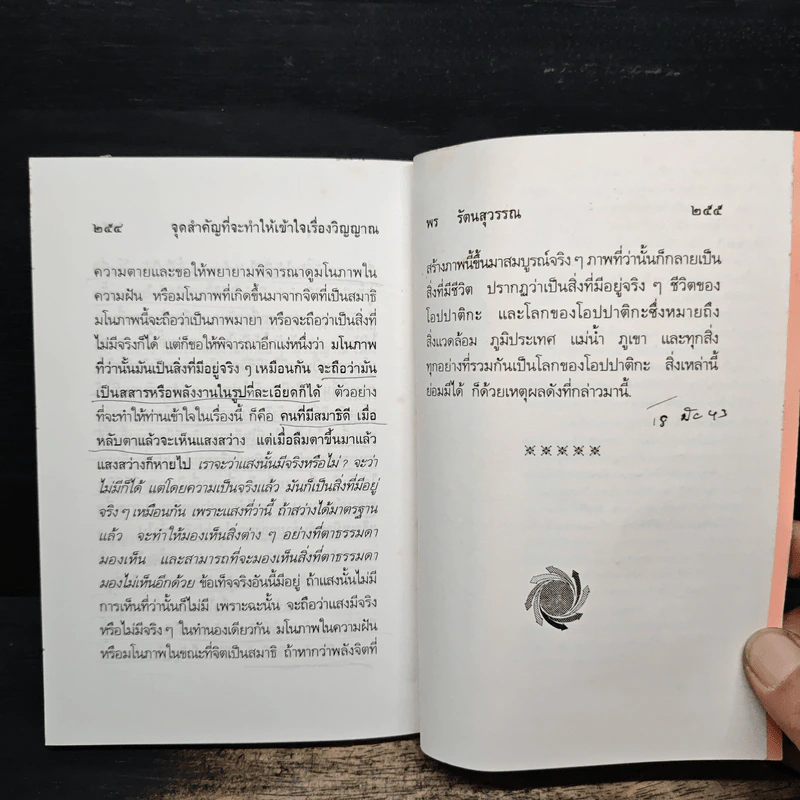 ๒๕๔ จุดสำคัญที่จะทำให้เข้าใจเรื่องวิญญาณ
ความตายและขอให้พยายามพิจารณาดูมโนภาพใน
ความฝัน หรือมโนภาพที่เกิดขึ้นมาจากจิตที่เป็นสมาธิ
มโนภาพนี้จะถือว่าเป็นภาพมายา หรือจะถือว่าเป็นสิ่งที่
ไม่มีจริงก็ได้ แต่ก็ขอให้พิจารณาอีกแง่หนึ่งว่า มโนภาพ
ที่ว่านั้นมันเป็นสิ่งที่มีอยู่จริง ๆ เหมือนกัน จะถือว่ามัน
เป็นสสารหรือพลังงานในรูปที่ละเอียดก็ได้ ตัวอย่าง
ที่จะทำให้ท่านเข้าใจในเรื่องนี้ ก็คือ คนที่มีสมาธิดี เมื่อ
หลับตาแล้วจะเห็นแสงสว่าง แต่เมื่อลืมตาขึ้นมาแล้ว
แสงสว่างก็หายไป เราจะว่าแสงนั้นมีจริงหรือไม่? จะว่า
ไม่มีก็ได้ แต่โดยความเป็นจริงแล้ว มันก็เป็นสิ่งที่มีอยู่
จริง ๆ เหมือนกัน เพราะแสงที่ว่านี้ ถ้าสว่างได้มาตรฐาน
แล้ว จะทำให้มองเห็นสิ่งต่าง ๆ อย่างที่ตาธรรมดา
มองเห็น และสามารถที่จะมองเห็นสิ่งที่ตาธรรมดา
มองไม่เห็นอีกด้วย ข้อเท็จจริงอันนี้มีอยู่ ถ้าแสงนั้นไม่มี
การเห็นที่ว่านั้นก็ไม่มี เพราะฉะนั้น จะถือว่าแสงมีจริง
หรือไม่มีจริง ๆ ในทำนองเดียวกัน มโนภาพในความฝัน
หรือมโนภาพในขณะที่จิตเป็นสมาธิ ถ้าหากว่าพลังจิตที่
พร รัตนสุวรรณ ๒๕๕
สร้างภาพนี้ขึ้นมาสมบูรณ์จริง ๆ ภาพที่ว่านั้นก็กลายเป็น
สิ่งที่มีชีวิต ปรากฏว่าเป็นสิ่งที่มีอยู่จริง ๆ ชีวิตของ
โอปปาติกะ และโลกของโอปปาติกะซึ่งหมายถึง
สิ่งแวดล้อม ภูมิประเทศ แม่น้ำ ภูเขา และทุกสิ่ง
ทุกอย่างที่รวมกันเป็นโลกของโอปปาติกะ สิ่งเหล่านี้
ย่อมมีได้ ก็ด้วยเหตุผลดังที่กล่าวมานี้.